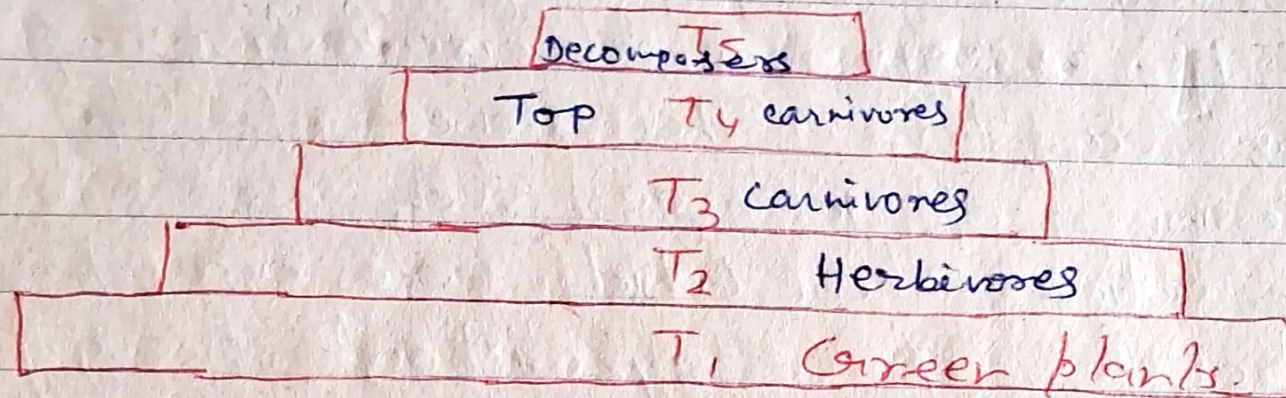 T5
Decomposers
Top T4 carnivores
T3 carnivores
T2 Herbivores
T1 Green plants.